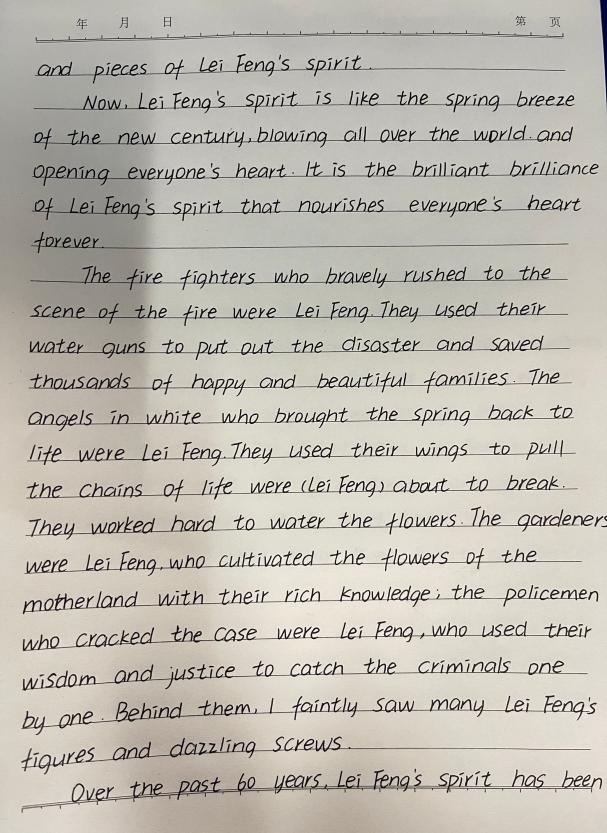 年 月 日 第 页
and pieces of Lei Feng's spirit.
Now, Lei Feng's spirit is like the spring breeze
of the new century, blowing all over the world and
opening everyone's heart. It is the brilliant brilliance
of Lei Feng's spirit that nourishes everyone's heart
forever.
The fire fighters who bravely rushed to the
scene of the fire were Lei Feng. They used their
water guns to put out the disaster and saved
thousands of happy and beautiful families. The
angels in white who brought the spring back to
life were Lei Feng. They used their wings to pull
the chains of life were (Lei Feng) about to break.
They worked hard to water the flowers. The gardeners
were Lei Feng, who cultivated the flowers of the
motherland with their rich knowledge; the policemen
who cracked the case were Lei Feng, who used their
wisdom and justice to catch the criminals one
by one. Behind them, I faintly saw many Lei Feng's
figures and dazzling screws.
Over the past 60 years, Lei Feng's spirit has been